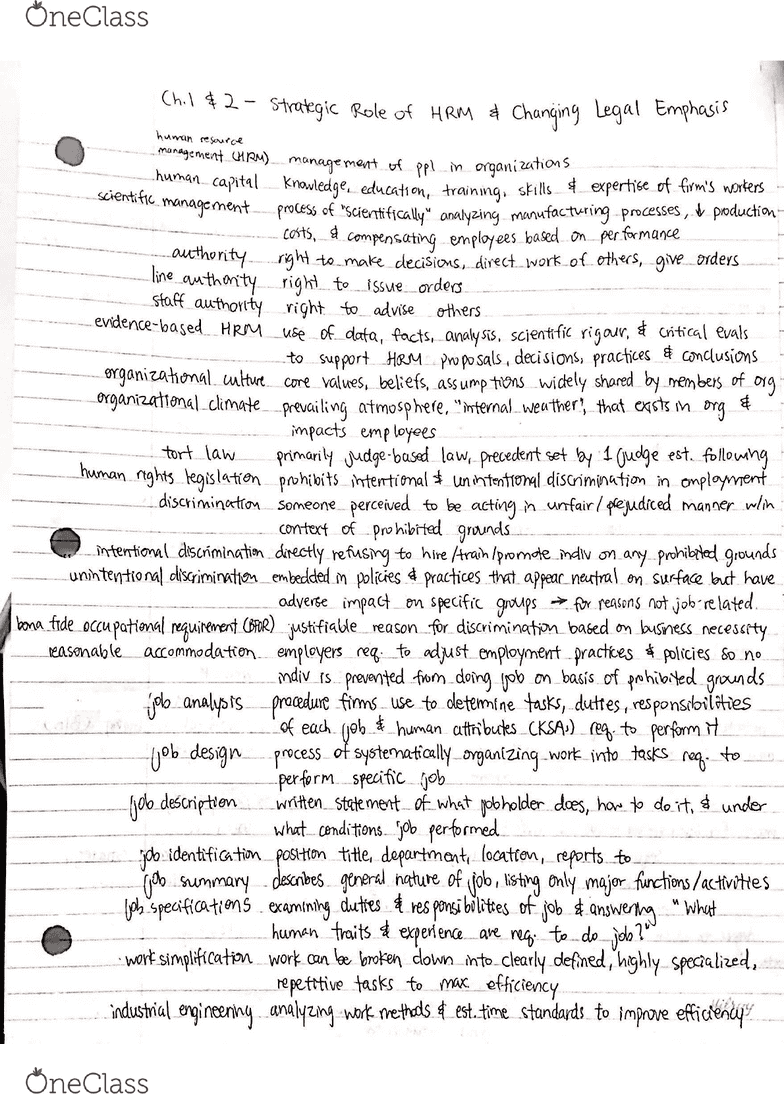 OneClass
Ch.1 & 2 - Strategic Role of HRM & Changing Legal Emphasis
human resource
management (HRM) management of ppl in organizations
human capital knowledge, education, training, skills & expertise of firm's workers
scientific management process of "scientifically" analyzing manufacturing processes, ↓ production
costs, & compensating employees based on performance
authority right to make decisions, direct work of others, give orders
line authority right to issue orders
staff authority right to advise others
evidence-based HRM use of data, facts, analysis, scientific rigour, & critical evals
to support HRM proposals, decisions, practices & conclusions
organizational culture core values, beliefs, assumptions widely shared by members of org
organizational climate prevailing atmosphere, "internal weather", that exists in org &
impacts employees
tort law primarily judge-based law, precedent set by 1 judge est. following
human rights legislation prohibits intentional & unintentional discrimination in employment
discrimination someone perceived to be acting in unfair/prejudiced manner w/in
context of prohibited grounds
intentional discrimination directly refusing to hire/train/promote indiv on any prohibited grounds
unintentional discrimination embedded in policies & practices that appear neutral on surface but have
adverse impact on specific groups → for reasons not job-related.
bona fide occupational requirement (BFOR) justifiable reason for discrimination based on business necessity
reasonable accommodation employers req. to adjust employment practices & policies so no
indiv is prevented from doing job on basis of prohibited grounds
job analysis procedure firms use to determine tasks, duties, responsibilities
of each job & human attributes (KSAs) req. to perform it
job design process of systematically organizing work into tasks req. to
perform specific job
job description written statement of what jobholder does, how to do it, & under
what conditions job performed
job identification position title, department, location, reports to
job summary describes general nature of job, listing only major functions/activities
job specifications examining duties & responsibilities of job & answering "What
human traits & experience are req. to do job?"
work simplification work can be broken down into clearly defined, highly specialized,
repetitive tasks to max efficiency
industrial engineering analyzing work methods & est. time standards to improve efficiency
OneClass